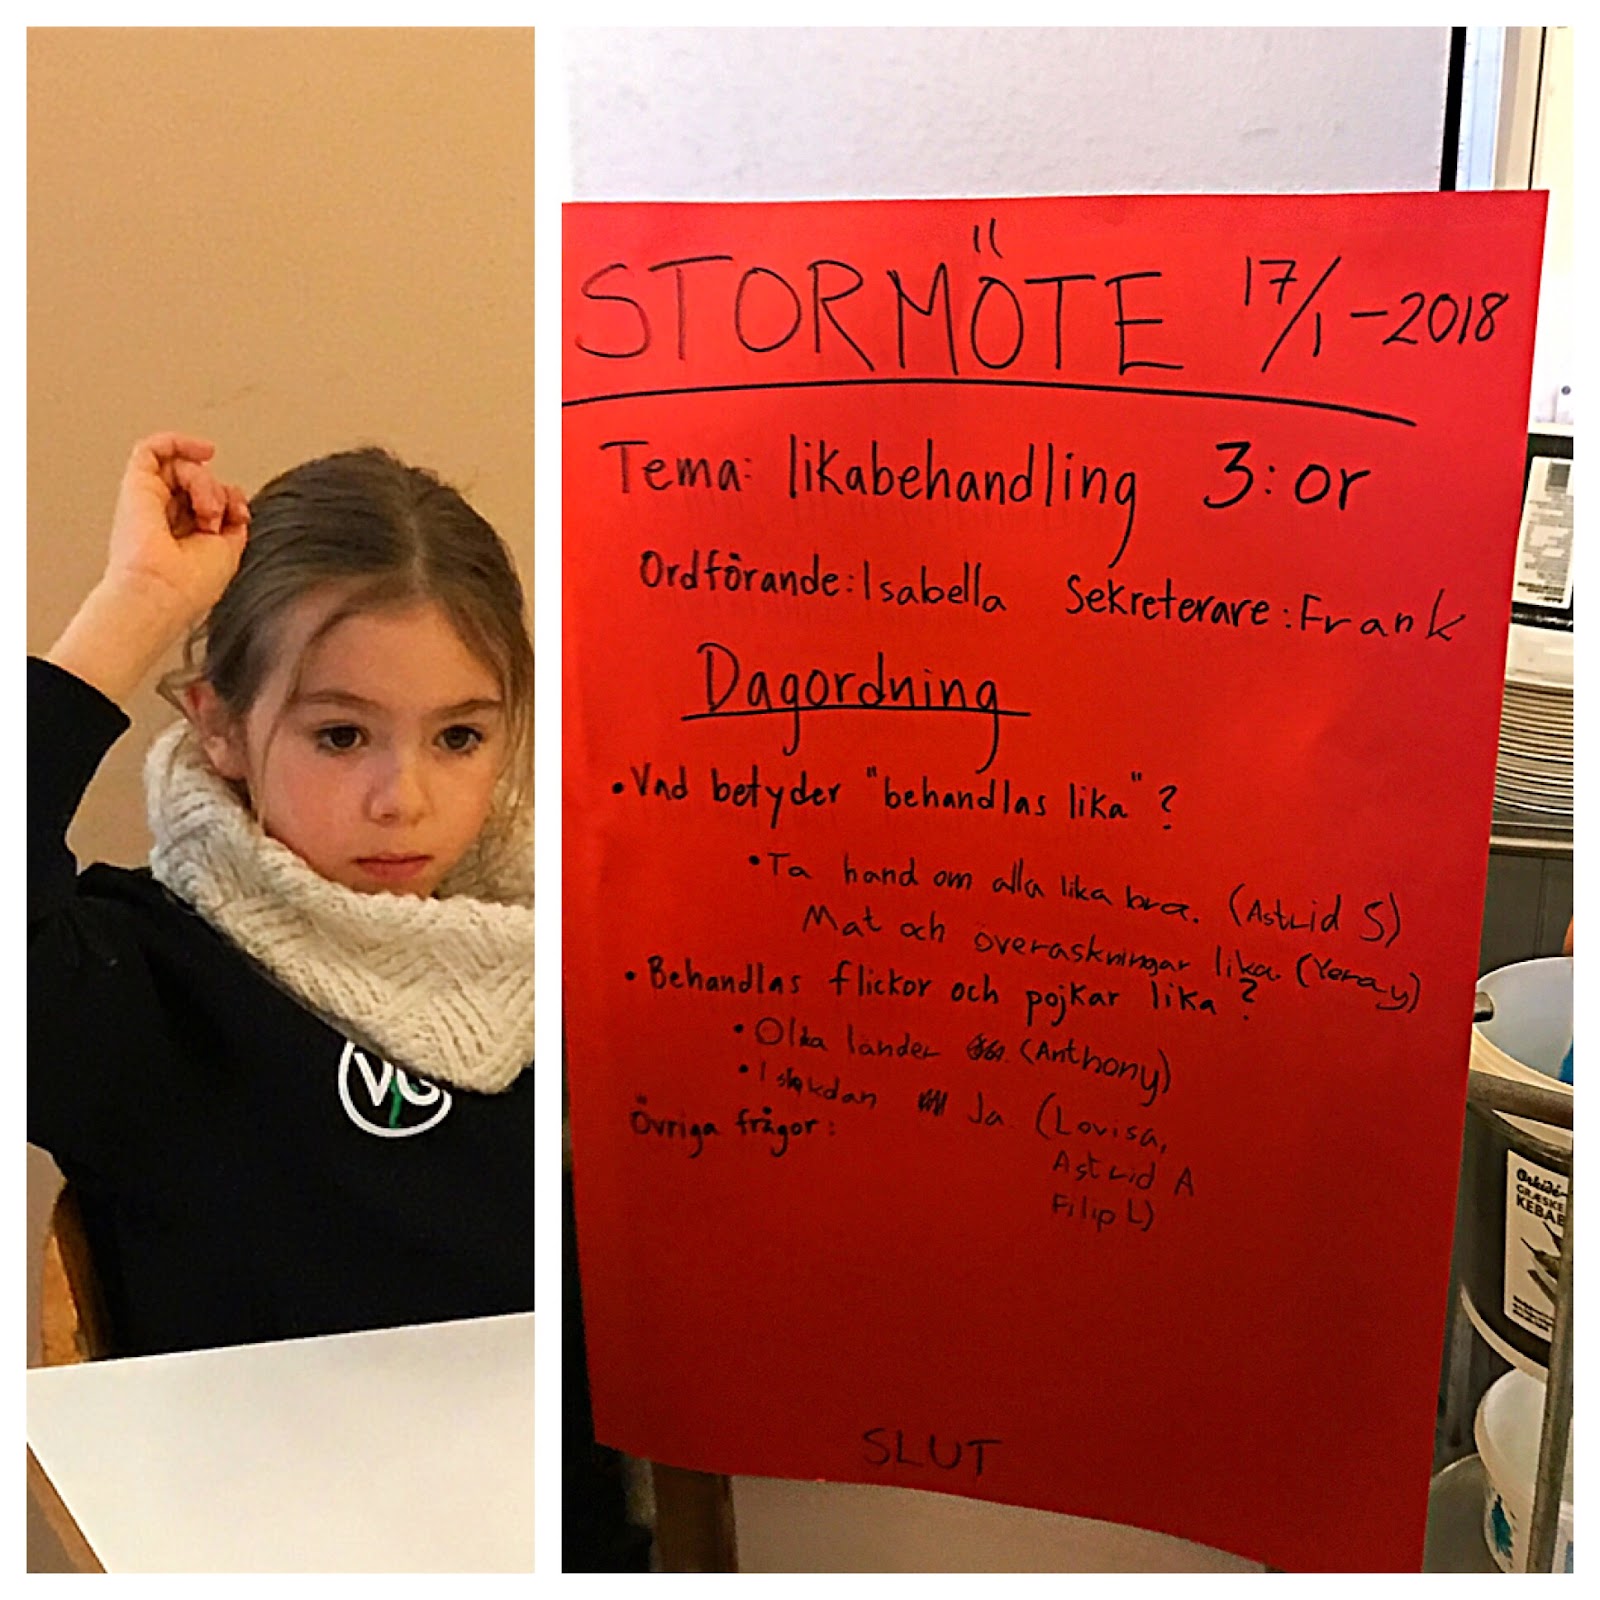 STORMÖTE 17/1-2018
Tema: likabehandling 3:or
Ordförande: Isabella Sekreterare: Frank
Dagordning
• Vad betyder "behandlas lika"?
• Ta hand om alla lika bra. (Astrid S)
Mat och överaskningar lika. (Yeray)
• Behandlas flickor och pojkar lika?
• Olika länder (Anthony)
• I slakdan Ja. (Lovisa,
Astrid A
Filip L)
Övriga frågor:
SLUT
GRÆSKE
KEBAB